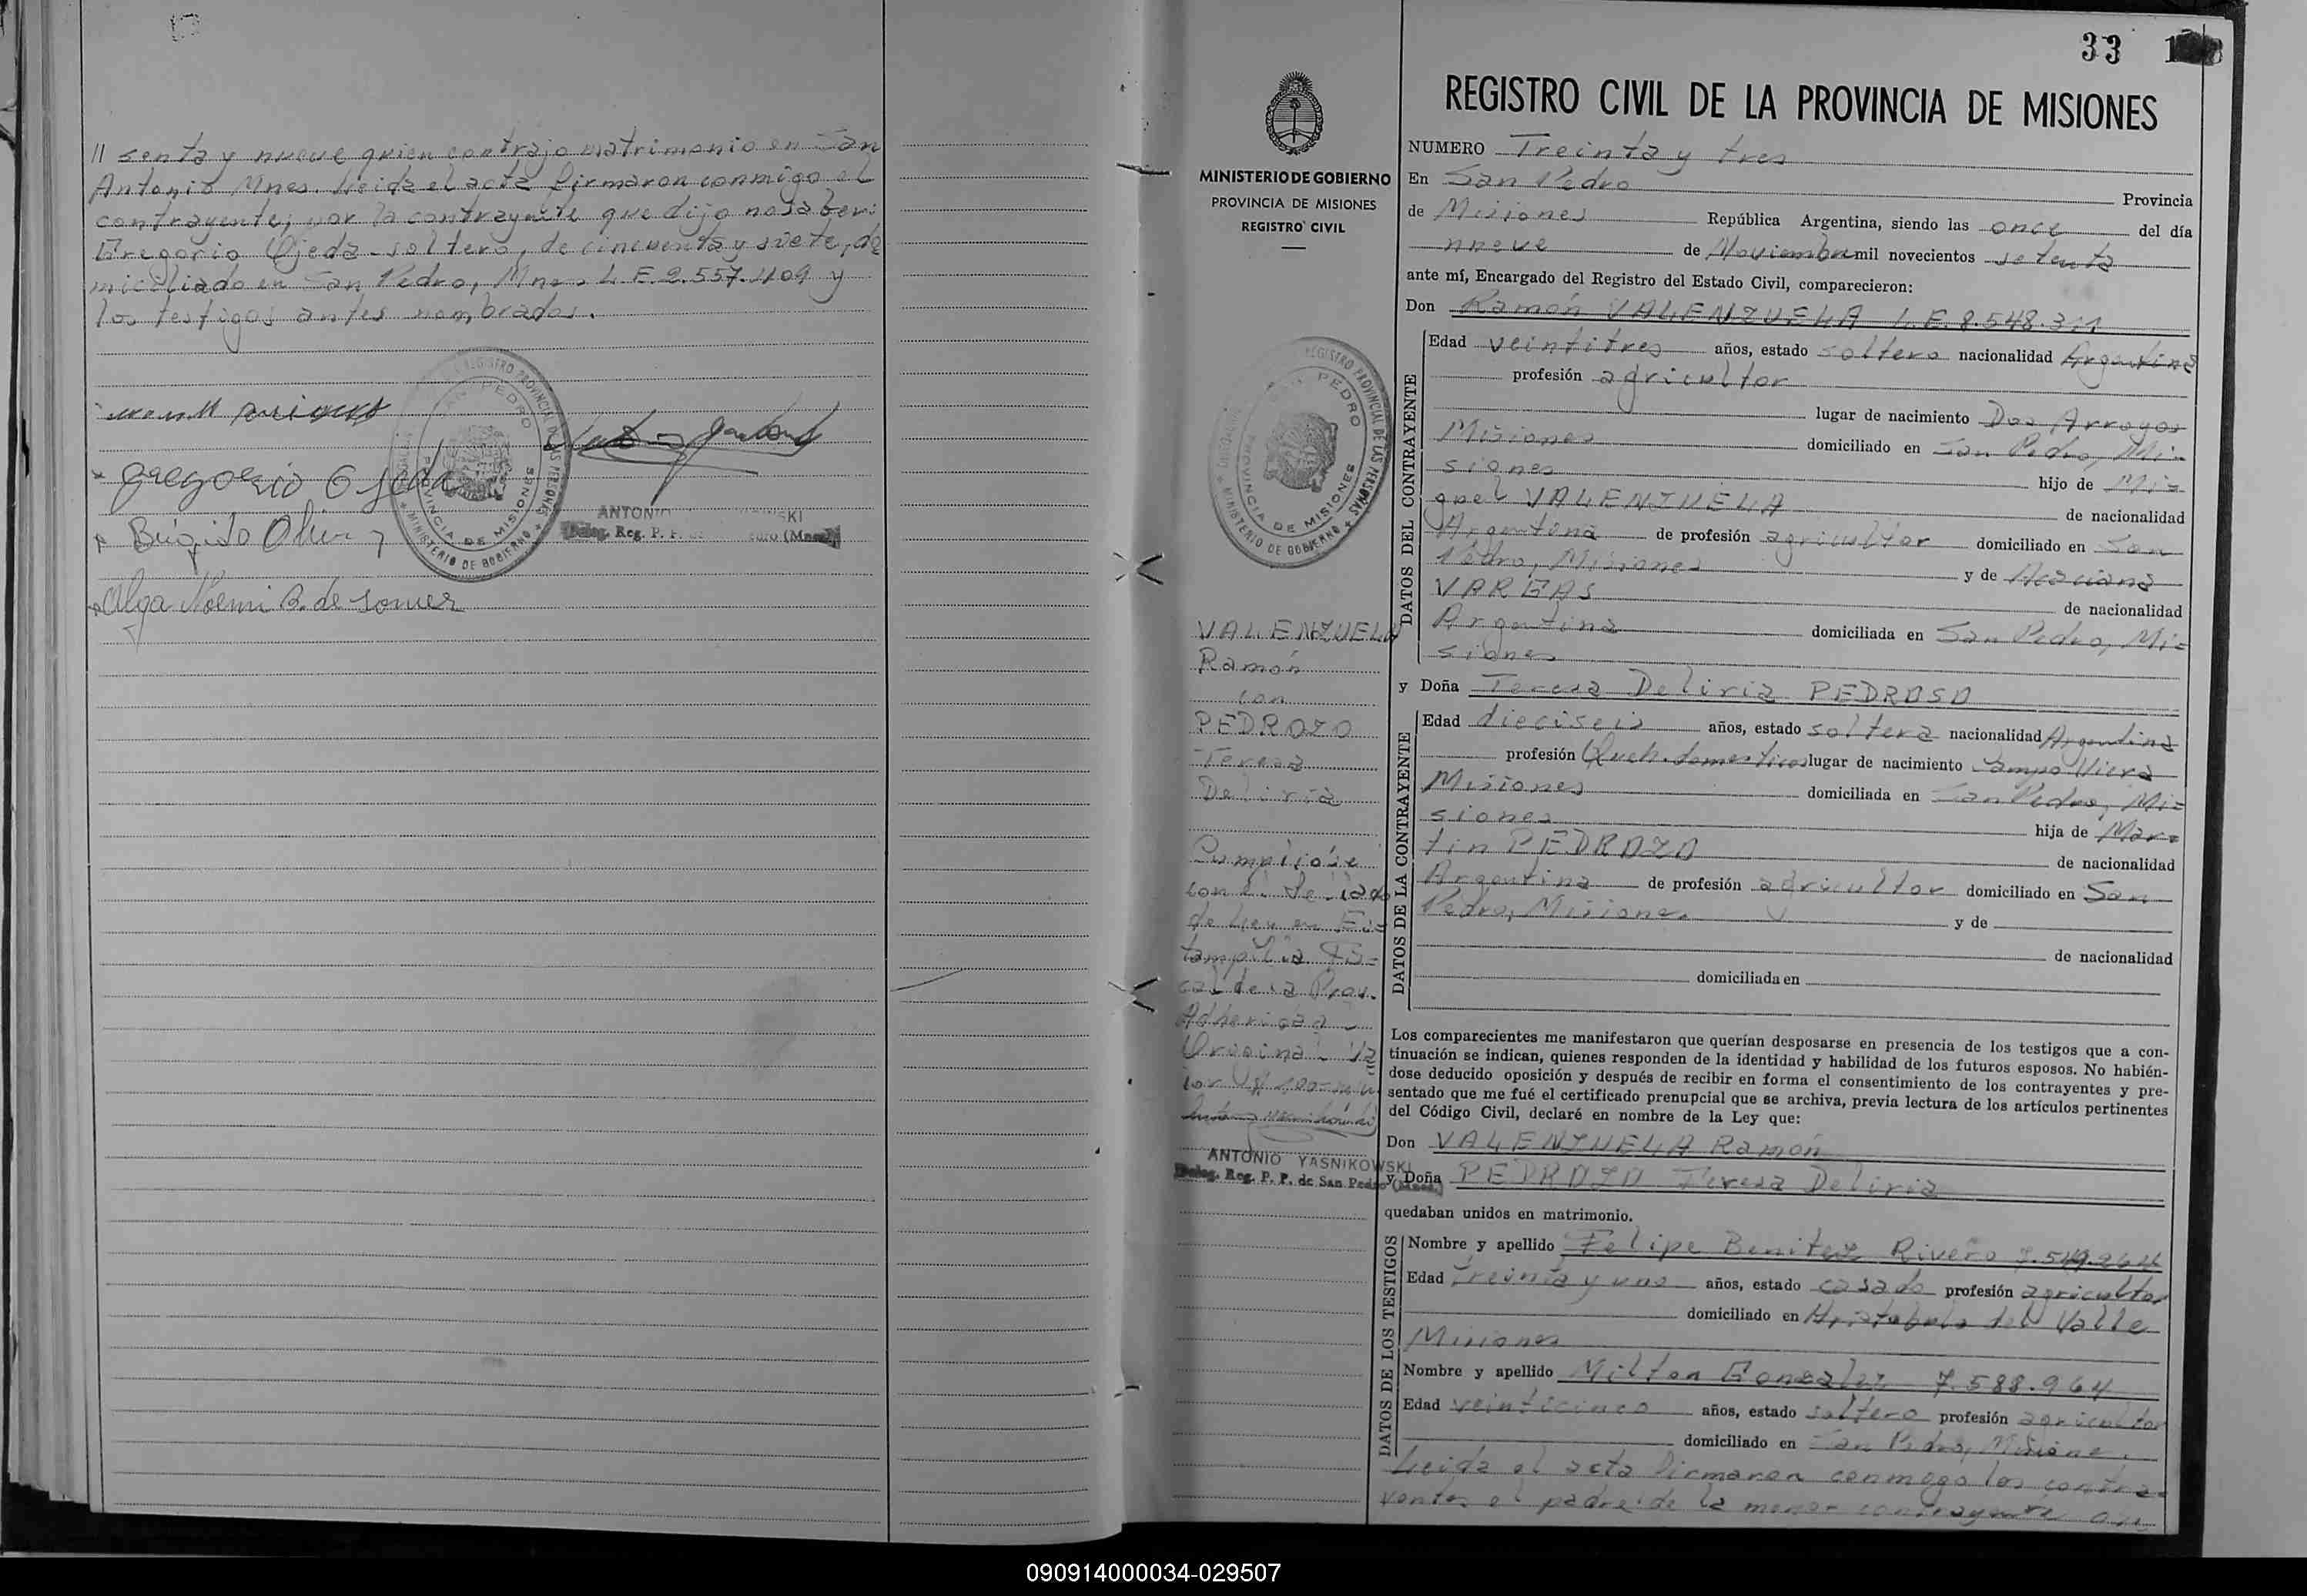 // senta y nueve quien contrajo matrimonio en San
Antonio Mnes. Leida el acta firmaron conmigo el
contrayente; por la contrayente que dijo no saber:
Gregorio Ojeda - soltero, de cincuenta y siete, do
miciliado en San Pedro, Mnes L.E. 2.557.409 y
los testigos antes nombrados.
Gregorio Ojeda
ANTONIO
Deleg. Reg. P. P. (Mnes.)
Olga Noemi B. de
REGISTRO PROVINCIAL DE LAS PERSONAS
SAN PEDRO
PROVINCIA DE MISIONES
MINISTERIO DE GOBIERNO
MINISTERIO DE GOBIERNO
PROVINCIA DE MISIONES
REGISTRO CIVIL
REGISTRO PROVINCIAL DE LAS PERSONAS
SAN PEDRO
PROVINCIA DE MISIONES
MINISTERIO DE GOBIERNO
VALENZUELA
Ramón
con
PEDROZO
Teresa
Deliria
Cumplióse
con el Sellado
de Ley en Es-
tampilla Fis-
cal de la Prov.
Adherida a
Original Va
lor
ANTONIO YASNIKOWSKI
Deleg. Reg. P. P. de San Pedro (Mnes.)
33
REGISTRO CIVIL DE LA PROVINCIA DE MISIONES
NUMERO Treinta y tres
En San Pedro Provincia
de Misiones República Argentina, siendo las once del día
nueve de Noviembre mil novecientos setenta
ante mí, Encargado del Registro del Estado Civil, comparecieron:
Don Ramón VALENZUELA L.E. 8.548.311
DATOS DEL CONTRAYENTE
Edad veintitres años, estado soltero nacionalidad Argentina
profesión agricultor
lugar de nacimiento Dos Arroyos
Misiones domiciliado en San Pedro, Mi-
siones hijo de Mi=
guel VALENZUELA de nacionalidad
Argentina de profesión agricultor domiciliado en San
Pedro, Misiones y de
VARGAS de nacionalidad
Argentina domiciliada en San Pedro, Mi=
siones
y Doña Teresa Deliria PEDROSO
DATOS DE LA CONTRAYENTE
Edad dieciseis años, estado soltera nacionalidad Argentina
profesión Queh. domesticos lugar de nacimiento Campo Viera
Misiones domiciliada en San Pedro, Mi=
siones hija de Mar=
tin PEDROZO de nacionalidad
Argentina de profesión agricultor domiciliado en San
Pedro, Misiones y de
de nacionalidad
domiciliada en
Los comparecientes me manifestaron que querían desposarse en presencia de los testigos que a con-
tinuación se indican, quienes responden de la identidad y habilidad de los futuros esposos. No habién-
dose deducido oposición y después de recibir en forma el consentimiento de los contrayentes y pre-
sentado que me fué el certificado prenupcial que se archiva, previa lectura de los artículos pertinentes
del Código Civil, declaré en nombre de la Ley que:
Don VALENZUELA Ramón
y Doña PEDROZO Teresa Deliria
quedaban unidos en matrimonio.
DATOS DE LOS TESTIGOS
Nombre y apellido Felipe Benitez Rivero 7.549.264
Edad treinta y uno años, estado casado profesión agricultor
domiciliado en Aristobulo del Valle
Misiones
Nombre y apellido Milton Gonzalez 7.588.964
Edad veinticinco años, estado soltero profesión agricultor
domiciliado en San Pedro, Misiones.
Leida el acta firmaron conmigo los contra=
yentes el padre de la menor contrayente
090914000034-029507